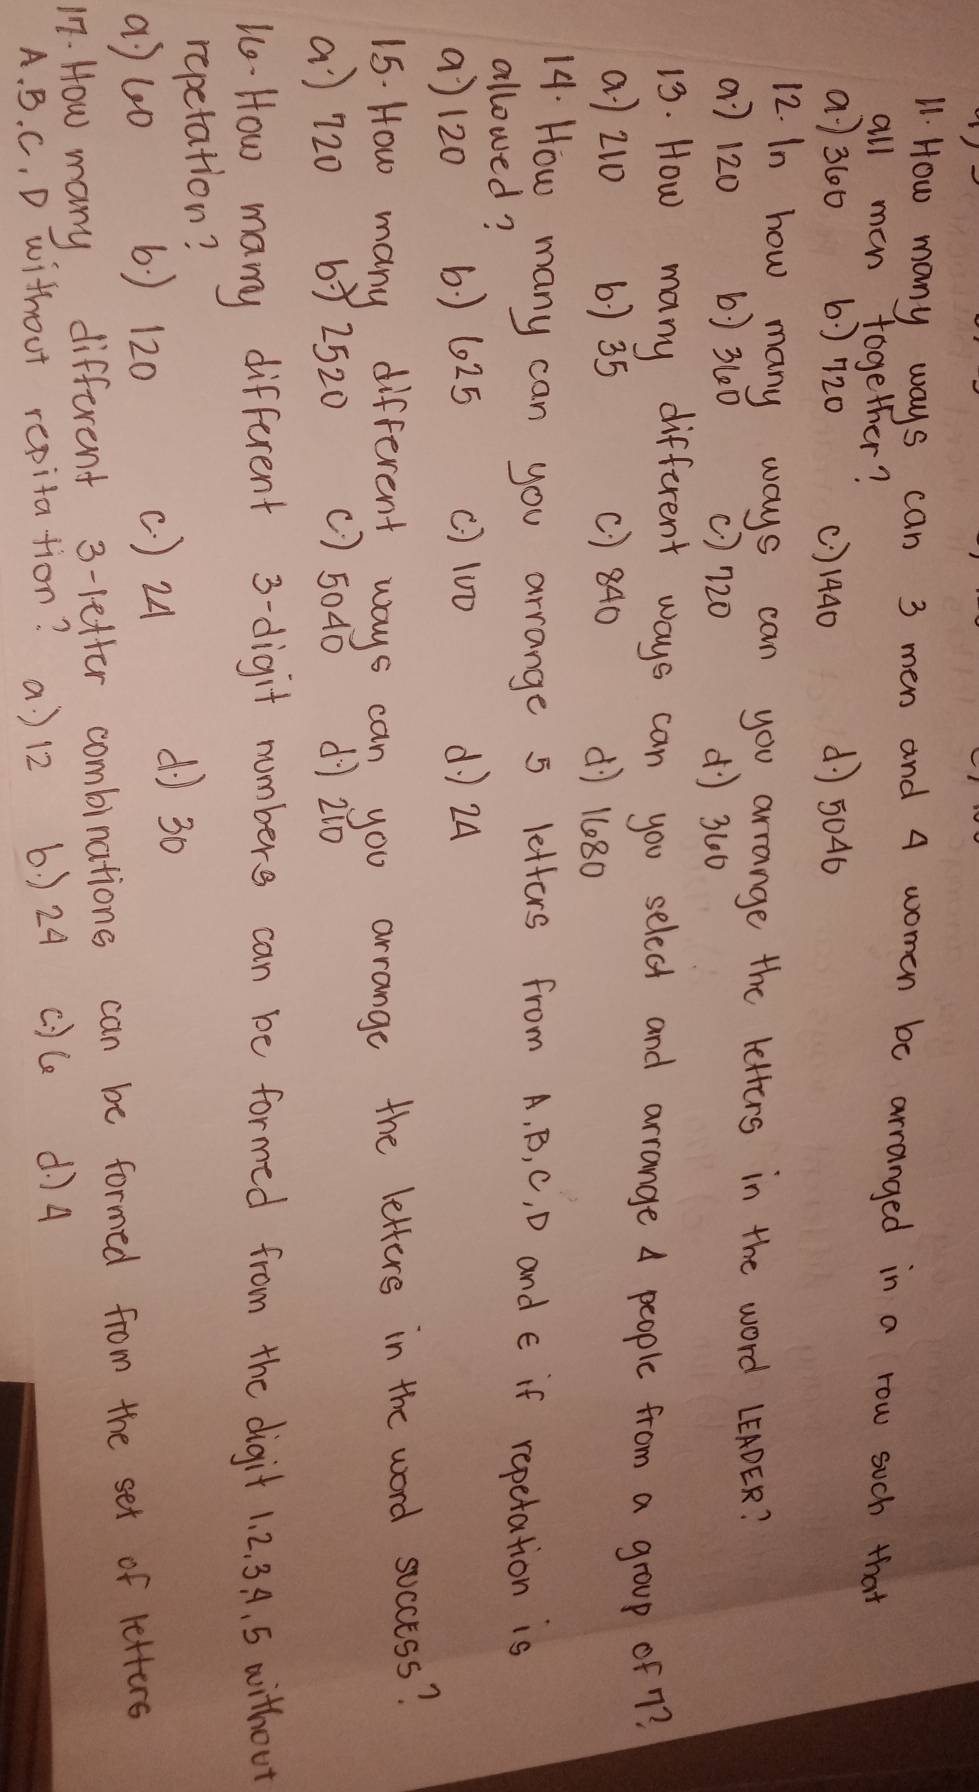 11. How many ways can 3 men and 4 women be arranged in a row such that
all men together?
a.) 360 b.) 720 c.) 1440 d.) 5040
12. In how many ways can you arrange the letters in the word LEADER?
a.) 120 b.) 360 c.) 720 d.) 360
13. How many different ways can you select and arrange 4 people from a group of 7?
a.) 210 b.) 35 c.) 840 d.) 1680
14. How many can you arrange 5 letters from A, B, C, D and E if repetation is
allowed?
a.) 120 b.) 625 c.) 100 d.) 24
15. How many different ways can you arrange the letters in the word success?
a.) 720 b.) 2520 c.) 5040 d.) 210
16. How many different 3-digit numbers can be formed from the digit 1,2,3,4,5 without
repetation?
a.) 60 b.) 120 c.) 24 d.) 30
17. How many different 3-letter combinations can be formed from the set of letters
A, B, C, D without repitation? a.) 12 b.) 24 c.) 6 d.) 4